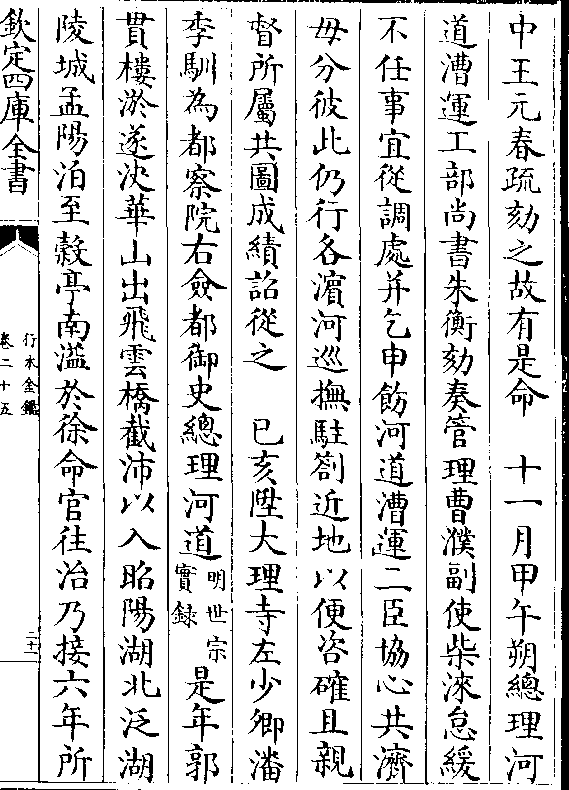 中王元春疏劾之故有是命　十一月甲午朔總理河
道漕運工部尚書朱衡劾奏管理曹濮副使柴淶怠緩
不任事宜從調處并乞申飭河道漕運二臣協心共濟
毋分彼此仍行各濵河巡撫駐劄近地以便咨確且親
督所屬共圖成績詔從之　已亥陞大理寺左少卿潘
季馴為都察院右僉都御史總理河道明世宗實錄是年郭
貫樓淤遂決華山出飛雲橋截沛以入昭陽湖北泛湖
陵城孟陽泊至榖亭南溢於徐命官往治乃接六年所
欽定四庫全書
行水金鑑
卷二十五
二十二